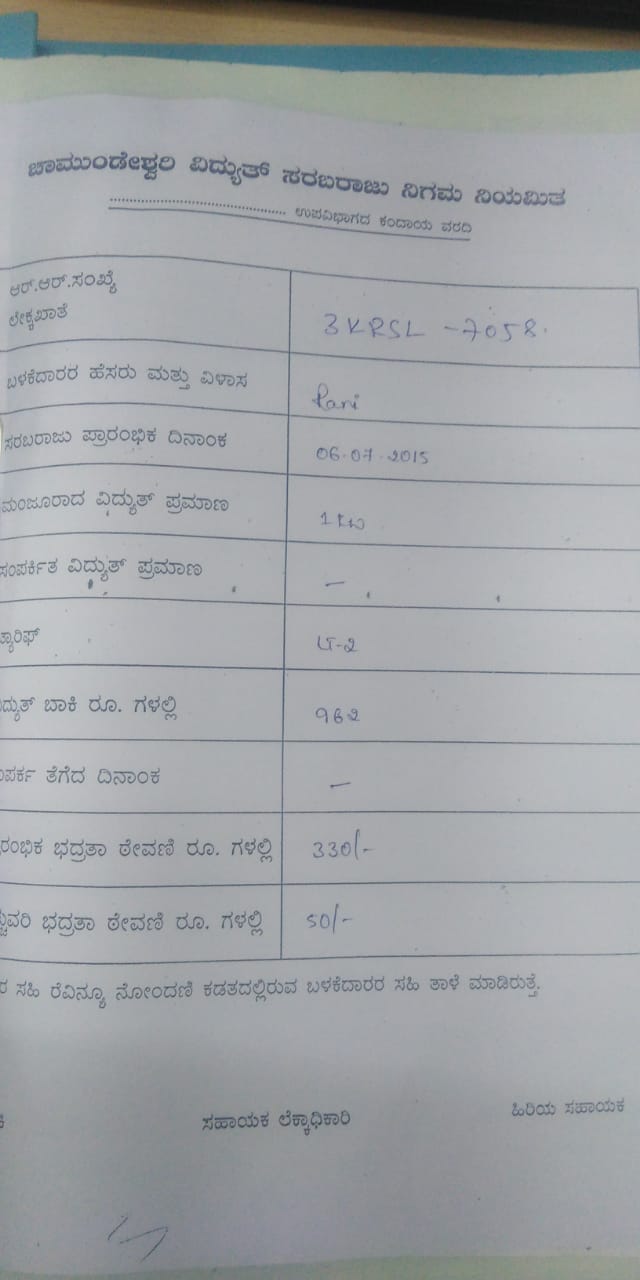 ಚಾಮುಂಡೇಶ್ವರಿ ವಿದ್ಯುತ್ ಸರಬರಾಜು ನಿಗಮ ನಿಯಮಿತ
.................................................. ಉಪವಿಭಾಗದ ಕಂದಾಯ ವರದಿ
ಆರ್.ಆರ್.ಸಂಖ್ಯೆ
ಲೆಕ್ಕಖಾತೆ
3KRSL -7058.
ಬಳಕೆದಾರರ ಹೆಸರು ಮತ್ತು ವಿಳಾಸ
ಸರಬರಾಜು ಪ್ರಾರಂಭಿಕ ದಿನಾಂಕ 06.07.2015
ಮಂಜೂರಾದ ವಿದ್ಯುತ್ ಪ್ರಮಾಣ
ಸಂಪರ್ಕಿತ ವಿದ್ಯುತ್ ಪ್ರಮಾಣ —
ಟ್ಯಾರಿಫ್
ದ್ಯುತ್ ಬಾಕಿ ರೂ. ಗಳಲ್ಲಿ 962
ಪರ್ಕ ತೆಗೆದ ದಿನಾಂಕ —
ರಂಭಿಕ ಭದ್ರತಾ ಠೇವಣಿ ರೂ. ಗಳಲ್ಲಿ 330/-
ಚ್ಚುವರಿ ಭದ್ರತಾ ಠೇವಣಿ ರೂ. ಗಳಲ್ಲಿ 50/-
ರ ಸಹಿ ರೆವಿನ್ಯೂ ನೋಂದಣಿ ಕಡತದಲ್ಲಿರುವ ಬಳಕೆದಾರರ ಸಹಿ ತಾಳೆ ಮಾಡಿರುತ್ತೆ.
ಸಹಾಯಕ ಲೆಕ್ಕಾಧಿಕಾರಿ ಹಿರಿಯ ಸಹಾಯಕ